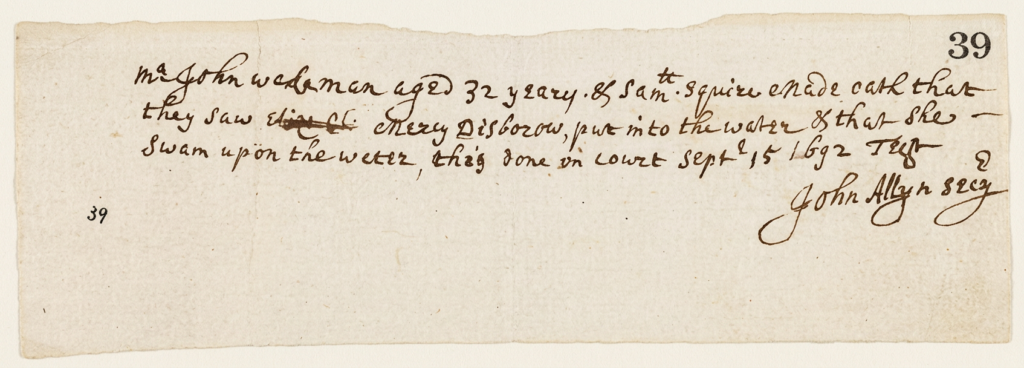 39
mr John wakeman aged 32 years. & Samll. squire made oath that
they saw Eliz Cl: Mercy Disborow, put into the water & that she
Swam upon the weter, this done in court Septr 15 1692 Test
John Allyn Secy
39